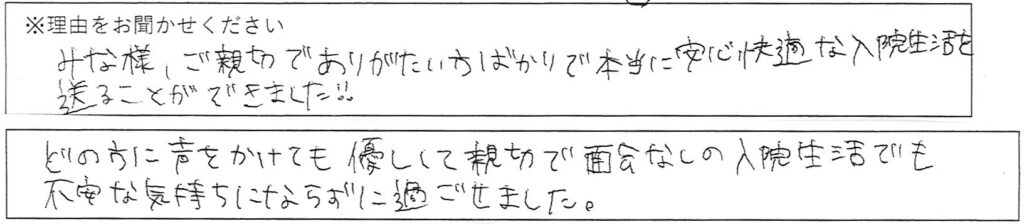 ※理由をお聞かせください
みな様、ご親切でありがたい方ばかりで本当に安心快適な入院生活を
送ることができました!!
どの方に声をかけても優しくて親切で面会なしの入院生活でも
不安な気持ちにならずに過ごせました。